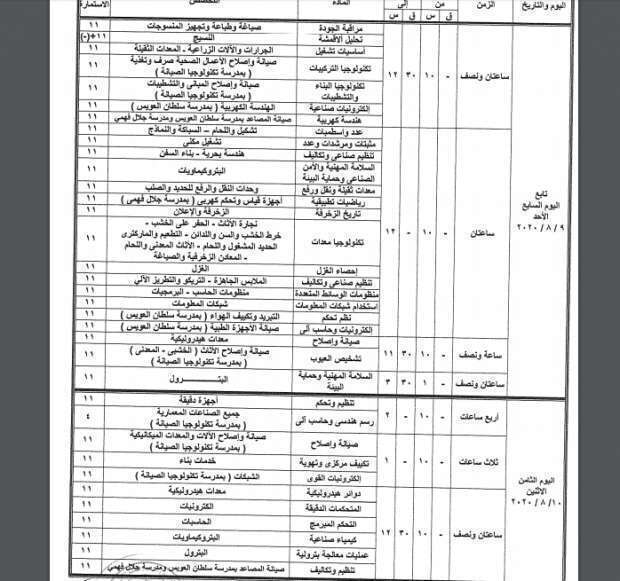 اليوم والتاريخ الزمن من إلى المادة التخصص الاستمارة
ق س ق س
ساعتان ونصف - ١٠ ٣٠ ١٢
مراقبة الجودة صباغة وطباعة وتجهيز المنسوجات ١١
تحليل الأقمشة النسيج ١١(+-)
أساسيات تشغيل الجرارات والآلات الزراعية - المعدات الثقيلة ١١
تكنولوجيا التركيبات صيانة وإصلاح الأعمال الصحية صرف وتغذية ١١
( بمدرسة تكنولوجيا الصيانة )
تكنولوجيا البناء صيانة وإصلاح المباني والتشطيبات ١١
والتشطيبات ( بمدرسة تكنولوجيا الصيانة )
إلكترونيات صناعية الهندسة الكهربية ( بمدرسة سلطان العويس ) ١١
هندسة كهربية صيانة المصاعد بمدرسة سلطان العويس ومدرسة جلال فهمي ١١
تابع
اليوم السابع
الأحد
٢٠٢٠ / ٨ / ٩
ساعتان - ١٠ - ١٢
عدد وأسطمبات تشكيل واللحام – السباكة والنماذج ١١
مثبتات ومرشدات وعدد تشغيل مكنى ١١
تنظيم صناعى وتكاليف هندسة بحرية - بناء السفن ١١
السلامة المهنية والأمن البتروكيماويات ١١
الصناعى وحماية البيئة
معدات ثقيلة ونقل ورفع وحدات النقل والرفع للحديد والصلب ١١
رياضيات تطبيقية أجهزة قياس وتحكم كهربى ( بمدرسة جلال فهمى ) ١١
تاريخ الزخرفة الزخرفة والإعلان ١١
تكنولوجيا معدات نجارة الأثاث - الحفر على الخشب - ١١
خرط الخشب والسن واللدائن - التطعيم والماركترى
الحديد المشغول واللحام - الأثاث المعدنى واللحام
- المعادن الزخرفية والصياغة
إحصاء الغزل الغزل ١١
تنظيم صناعى وتكاليف الملابس الجاهزة - التريكو والتطريز الآلي ١١
منظومات الوسائط المتعددة منظومات الحاسب - البرمجيات ١١
استخدام شبكات المعلومات شبكات المعلومات ١١
نظم تحكم التبريد وتكييف الهواء ( بمدرسة سلطان العويس ) ١١
إلكترونيات وحاسب آلى صيانة الأجهزة الطبية ( بمدرسة سلطان العويس ) ١١
ساعة ونصف - ١٠ ٣٠ ١١
صيانة وإصلاح معدات هيدروليكية ١١
تشخيص العيوب صيانة وإصلاح الأثاث ( الخشبى - المعدنى ) ١١
( بمدرسة تكنولوجيا الصيانة )
ساعتان ونصف - ١ ٣٠ ٣
السلامة المهنية وحماية البتـــــــرول ١١
البيئة
اليوم الثامن
الاثنين
٢٠٢٠ / ٨ / ١٠
أربع ساعات - ١٠ - ٢
تنظيم وتحكم أجهزة دقيقة ١١
رسم هندسى وحاسب آلى جميع الصناعات المعمارية ٤
( بمدرسة تكنولوجيا الصيانة )
ثلاث ساعات - ١٠ - ١
صيانة وإصلاح صيانة وإصلاح الآلات والمعدات الميكانيكية ١١
( بمدرسة تكنولوجيا الصيانة )
تكييف مركزى وتهوية خدمات بناء ١١
إلكترونيات القوى الشبكات ( بمدرسة تكنولوجيا الصيانة ) ١١
ساعتان ونصف - ١٠ ٣٠ ١٢
دوائر هيدروليكية معدات هيدروليكية ١١
المتحكمات الدقيقة إلكترونيات ١١
التحكم المبرمج الحاسبات ١١
كيمياء صناعية البتروكيماويات ١١
عمليات معالجة بترولية البترول ١١
تنظيم وتكاليف صيانة المصاعد بمدرسة سلطان العويس ومدرسة جلال فهمي ١١